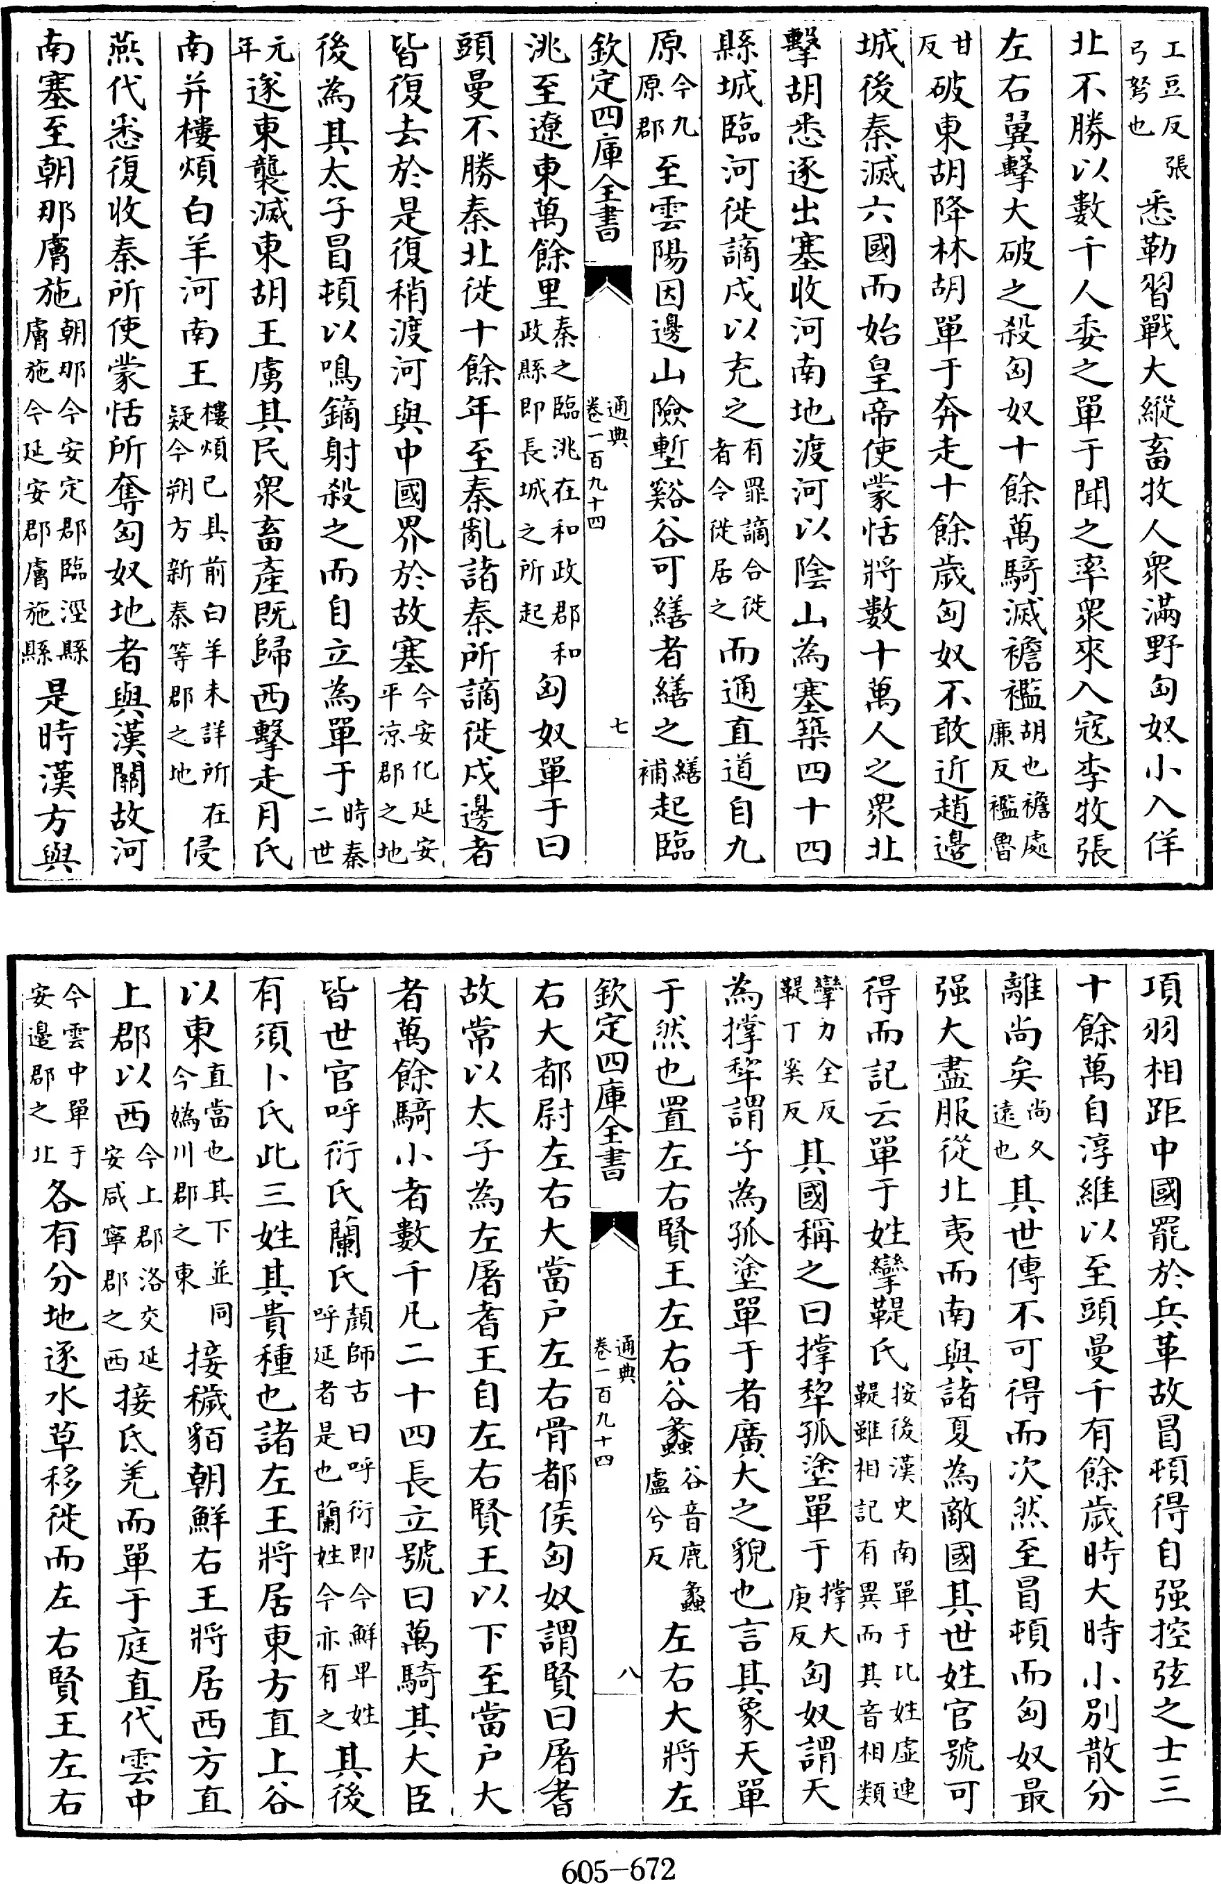 工豆反張弓弩也悉勒習戰大縱畜牧人衆滿野匈奴小入佯
北不勝以數千人委之單于聞之率衆來入寇李牧張
左右翼擊大破之殺匈奴十餘萬騎滅襜襤胡也襜處廉反襤魯
甘反破東胡降林胡單于奔走十餘歲匈奴不敢近趙邊
城後秦滅六國而始皇帝使蒙恬將數十萬人之衆北
擊胡悉逐出塞收河南地渡河以陰山為塞築四十四
縣城臨河徙謫戍以充之有罪謫合徙者令徙居之而通直道自九
原今九原郡至雲陽因邊山險塹谿谷可繕者繕之繕補起臨
欽定四庫全書
通典卷一百九十四
七
洮至遼東萬餘里秦之臨洮在和政郡和政縣即長城之所起匈奴單于曰
頭曼不勝秦北徙十餘年至秦亂諸秦所謫徙戍邊者
皆復去於是復稍渡河與中國界於故塞今安化延安平凉郡之地
後為其太子冒頓以鳴鏑射殺之而自立為單于時秦二世
元年遂東襲滅東胡王虜其民衆畜產既歸西擊走月氏
南并樓煩白羊河南王樓煩已具前白羊未詳所在疑今朔方新秦等郡之地侵
燕代悉復收秦所使蒙恬所奪匈奴地者與漢關故河
南塞至朝那膚施朝那今安定郡臨涇縣膚施今延安郡膚施縣是時漢方與
項羽相距中國罷於兵革故冒頓得自强控弦之士三
十餘萬自淳維以至頭曼千有餘歲時大時小別散分
離尚矣尚久遠也其世傳不可得而次然至冒頓而匈奴最
强大盡服從北夷而南與諸夏為敵國其世姓官號可
得而記云單于姓攣鞮氏按後漢史南單于比姓虛連鞮雖相記有異而其音相類
攣力全反鞮丁奚反其國稱之曰撐犂孤塗單于撐大庚反匈奴謂天
為撐犂謂子為孤塗單于者廣大之貌也言其象天單
于然也置左右賢王左右谷蠡谷音鹿蠡盧兮反左右大將左
欽定四庫全書
通典卷一百九十四
八
右大都尉左右大當户左右骨都侯匈奴謂賢曰屠耆
故常以太子為左屠耆王自左右賢王以下至當户大
者萬餘騎小者數千凡二十四長立號曰萬騎其大臣
皆世官呼衍氏蘭氏顔師古曰呼衍即今鮮卑姓呼延者是也蘭姓今亦有之其後
有須卜氏此三姓其貴種也諸左王將居東方直上谷
以東直當也其下並同今媯川郡之東接穢貊朝鮮右王將居西方直
上郡以西今上郡洛交延安咸寧郡之西接氐羌而單于庭直代雲中
今雲中單于安邊郡之北各有分地逐水草移徙而左右賢王左右
605-672